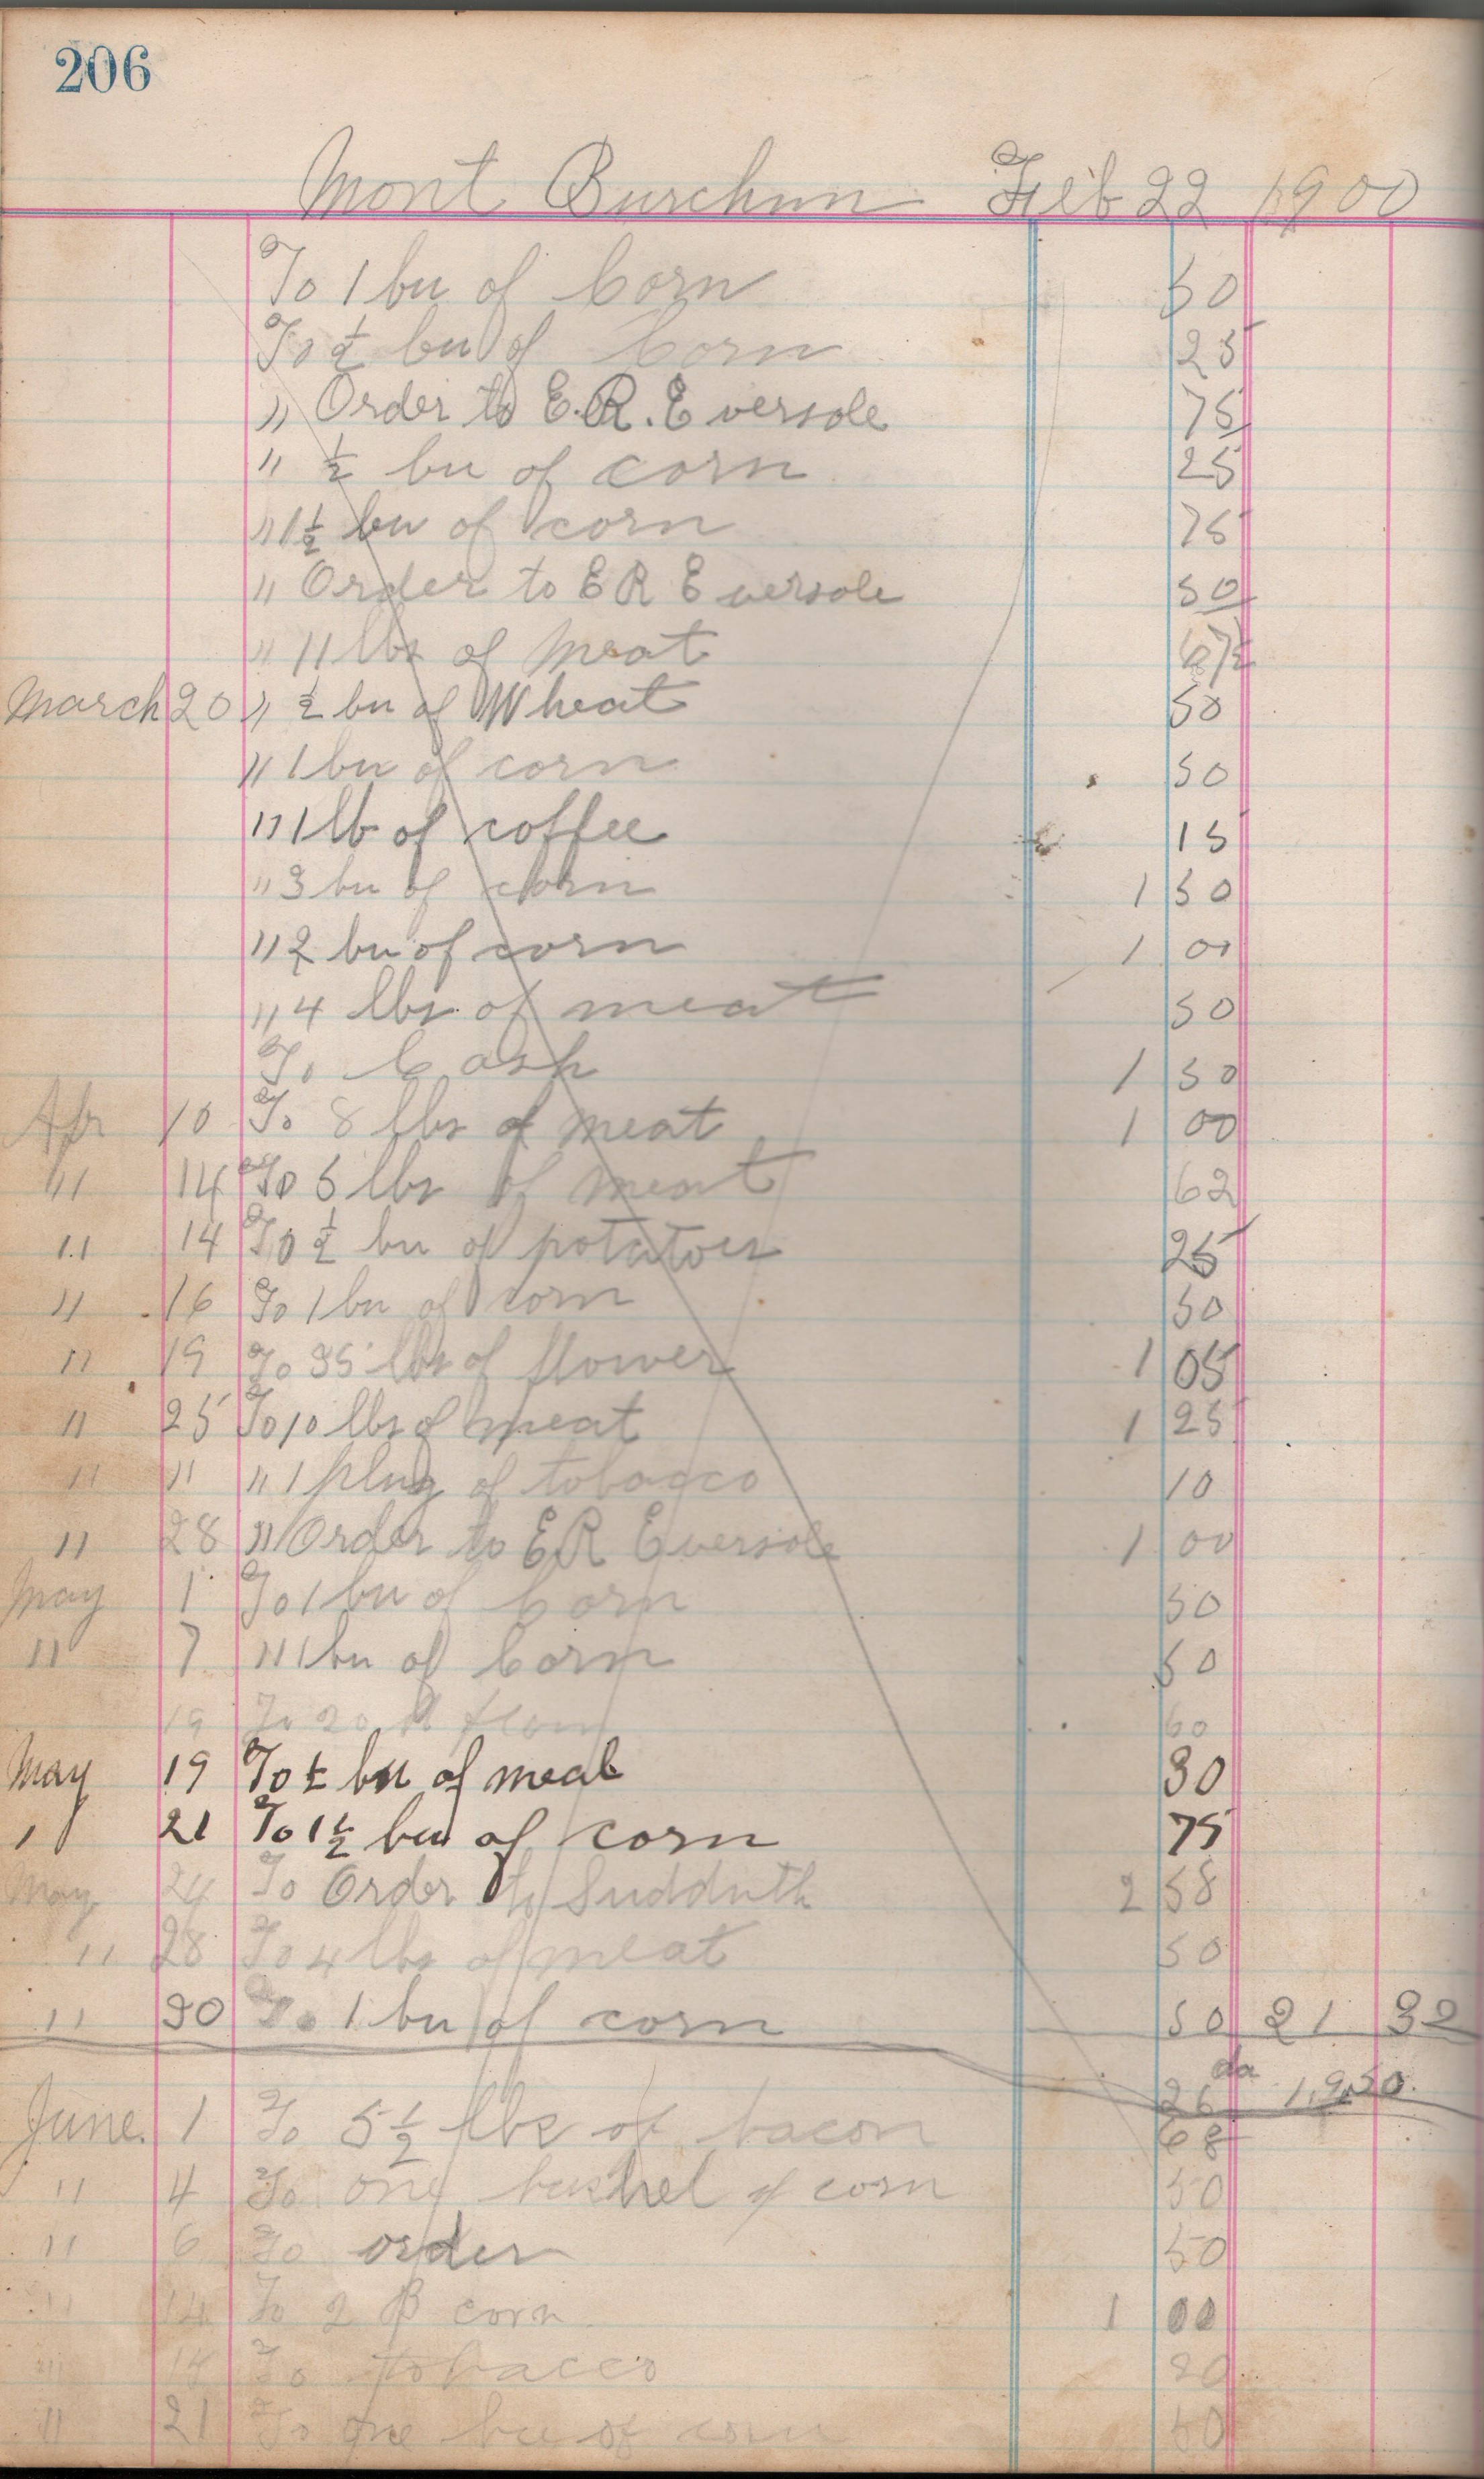 206
Mont Burchum Feb 22 1900
To 1 bu of Corn 50
To ½ bu of Corn 25
" Order to E.R. Eversole 75
" ½ bu of corn 25
" 1½ bu of corn 75
" Order to E R Eversole 50
" 11 lbs of Meat 67½
March 20 " ½ bu of Wheat 50
" 1 bu of corn 50
" 1 lb of coffee 15
" 3 bu of corn 1 50
" 2 bu of corn 1 00
" 4 lbs of meat 50
To Cash 1 50
Apr 10 To 8 lbs of meat 1 00
" 14 To 5 lbs of meat 62
" 14 To ½ bu of potatoes 25
" 16 To 1 bu of corn 50
" 19 To 35 lbs of flower 1 05
" 25 To 10 lbs of meat 1 25
" " " 1 plug of tobacco 10
" 28 " Order to E R Eversole 1 00
May 1 To 1 bu of Corn 50
" 7 " 1 bu of Corn 50
19 To 20 # flour 60
May 19 To ½ bu of meal 30
" 21 To 1½ bu of corn 75
May 24 To Order to Sudduth 2 58
" 28 To 4 lbs of meat 50
" 30 To 1 bu of corn 50 21 32
26 da 19.50
June 1 To 5½ lbs of bacon 68
" 4 To one bushel of corn 50
" 6 To order 50
" 14 To 2 B corn 1 00
" 14 To tobacco 20
" 21 To one bu of corn 50